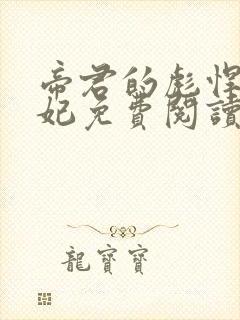 帝君的彪悍
妃免費閱讀
龍寶寶